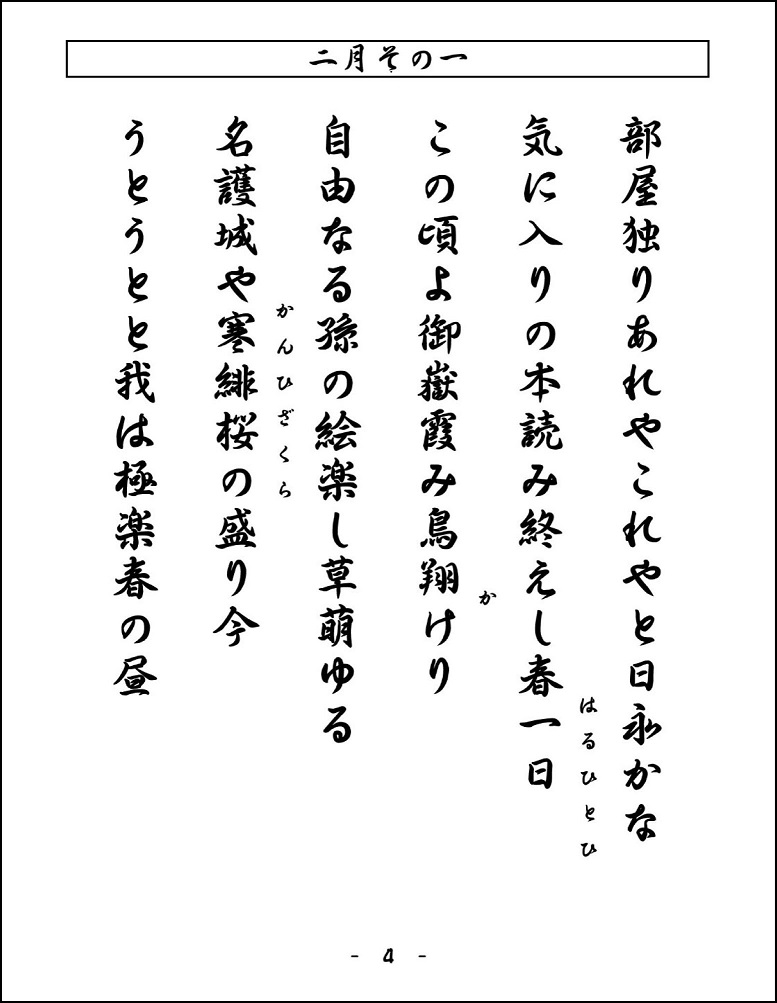 二月その一
部屋独りあれやこれやと日永かな
気に入りの本読み終えし春一日
はるひとひ
この頃よ御嶽霞み鳥翔けり
か
自由なる孫の絵楽し草萌ゆる
名護城や寒緋桜の盛り今
かんひざくら
うとうとと我は極楽春の昼
- 4 -